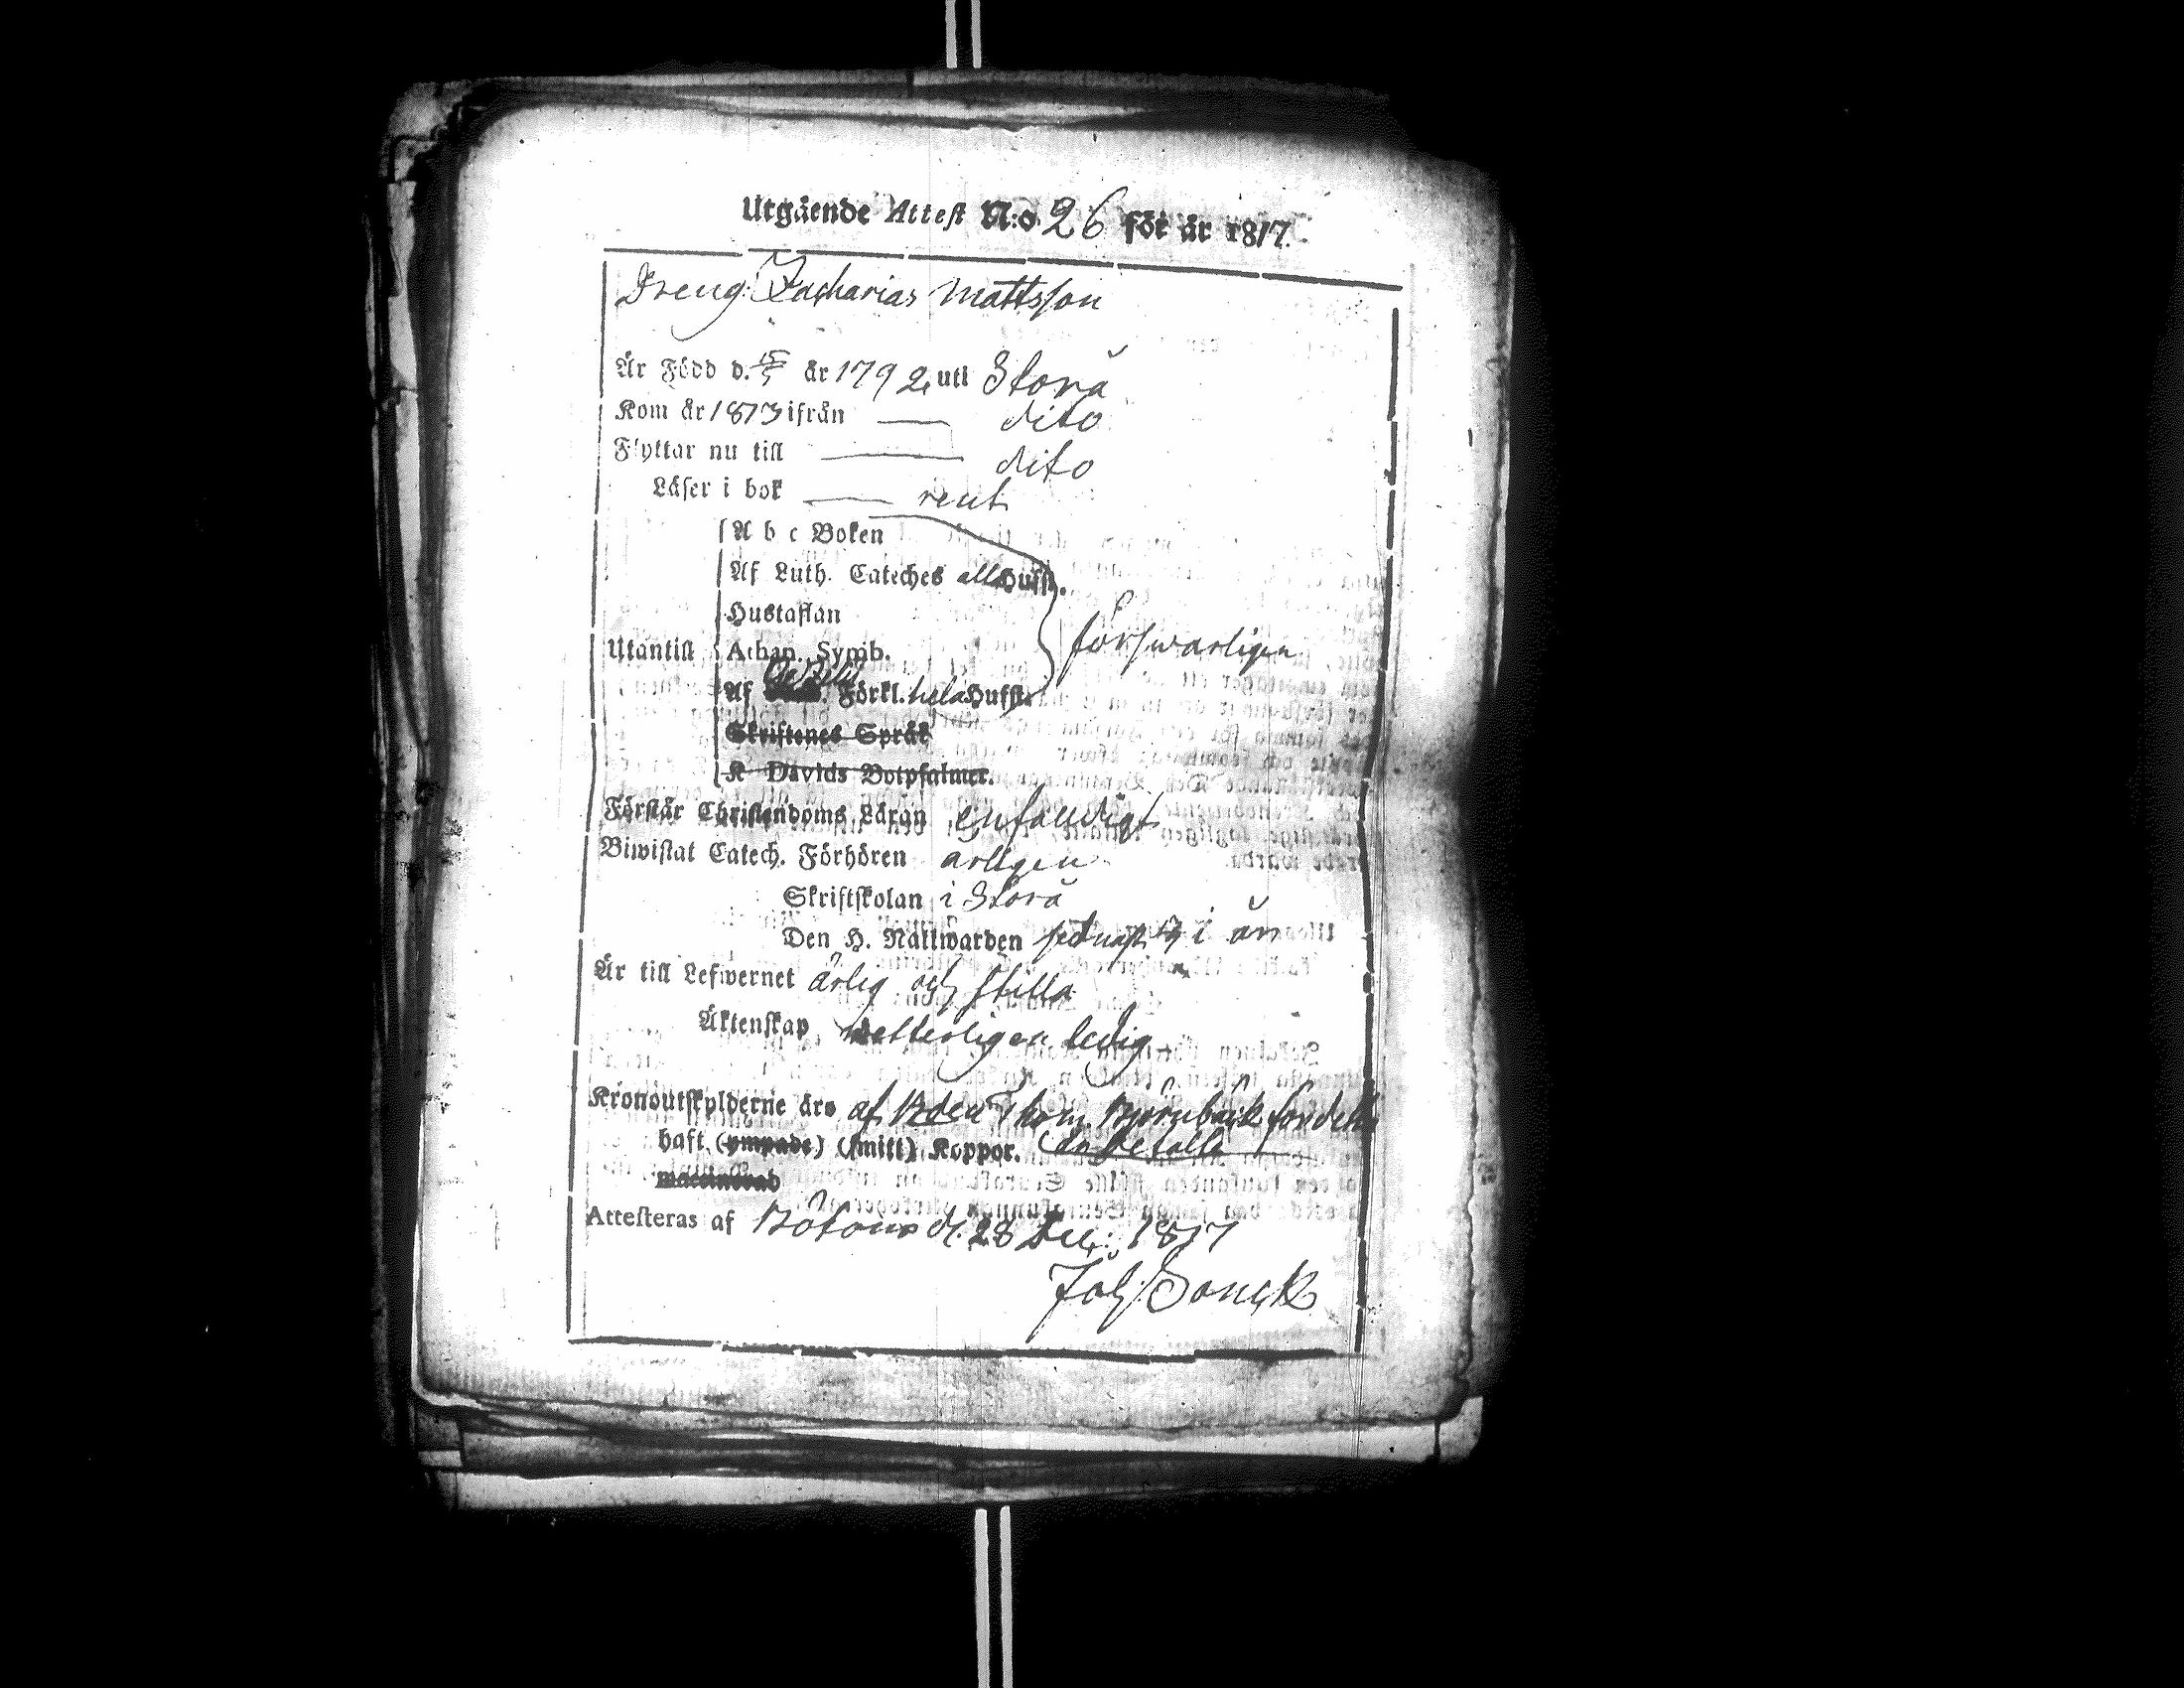 Utgående Attest N:o 26 för år 1817.
Dreng Zacharias Mattsson
Är Född d. 15/5 år 1792 uti Storå
Kom år 1813 ifrån — dito
Flyttar nu till — dito
Läser i bok — rent
A b c Boken
Af Luth. Cateches all Hufst.
Hustaflan
Utantill Athan. Symb. försvarligen
Af Förkl. hela Hufst.
Skriftenes Språk
K Davids Botpsalmer.
Förstår Christendoms Läran enfaldigt
Biwistat Catech. Förhören årligen
Skriftskolan i Storå
Den H. Nattwarden sednast i år
Är till Lefwernet ärlig och stilla
Äktenskap wetterligen ledig
Kronoutskylderne äro af Thom. Björnbäck för detta
haft (ympade) (smitt) Koppor. år betalte
Attesteras af Bötom d. 28 Dec: 1817
Joh: Sonck